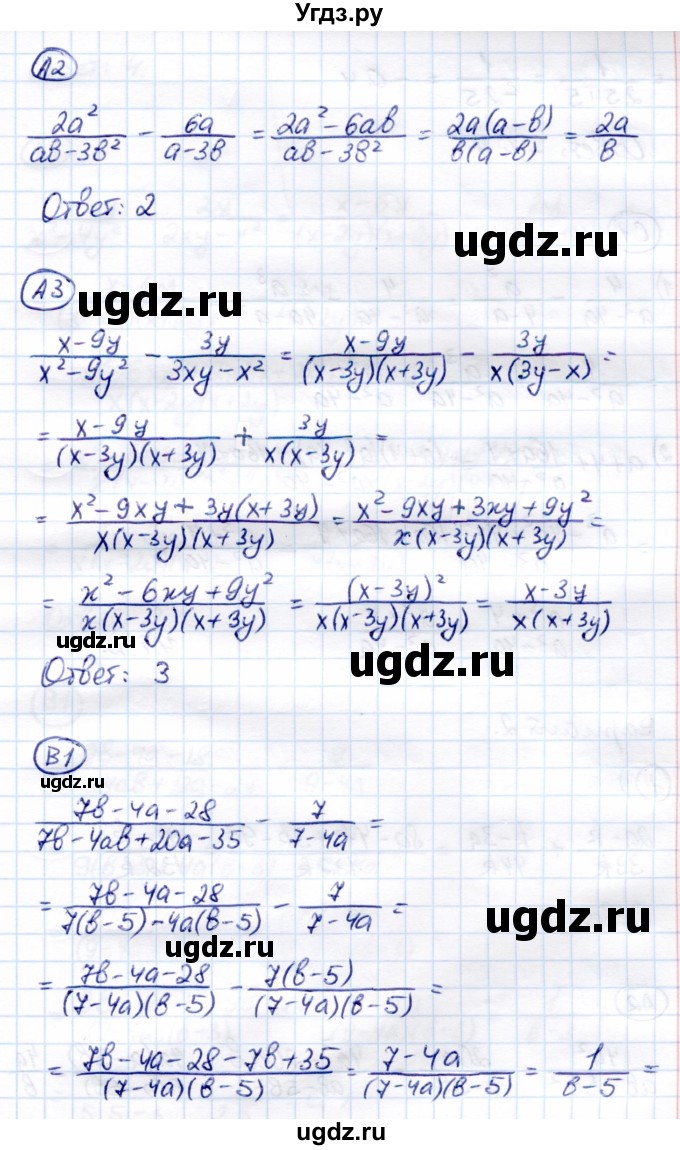 Угдз.ру
А2
2a²/(ab-3b²) - 6a/(a-3b) = (2a²-6ab)/(ab-3b²) = 2a(a-b)/(b(a-b)) = 2a/b
Ответ: 2
ugdz.ru
ugdz.ru
А3
(x-9y)/(x²-9y²) - 3y/(3xy-x²) = (x-9y)/((x-3y)(x+3y)) - 3y/(x(3y-x)) =
= (x-9y)/((x-3y)(x+3y)) + 3y/(x(x-3y)) =
= (x²-9xy+3y(x+3y))/(x(x-3y)(x+3y)) = (x²-9xy+3xy+9y²)/(x(x-3y)(x+3y)) =
= (x²-6xy+9y²)/(x(x-3y)(x+3y)) = (x-3y)²/(x(x-3y)(x+3y)) = (x-3y)/(x(x+3y))
ugdz.ru
ugdz.ru
Ответ: 3
В1
ugdz.ru
(7b-4a-28)/(7b-4ab+20a-35) - 7/(7-4a) =
= (7b-4a-28)/(7(b-5)-4a(b-5)) - 7/(7-4a) =
ugdz.ru
ugdz.ru
= (7b-4a-28)/((7-4a)(b-5)) - 7(b-5)/((7-4a)(b-5)) =
= (7b-4a-28-7b+35)/((7-4a)(b-5)) = (7-4a)/((7-4a)(b-5)) = 1/(b-5) =
ugdz.ru